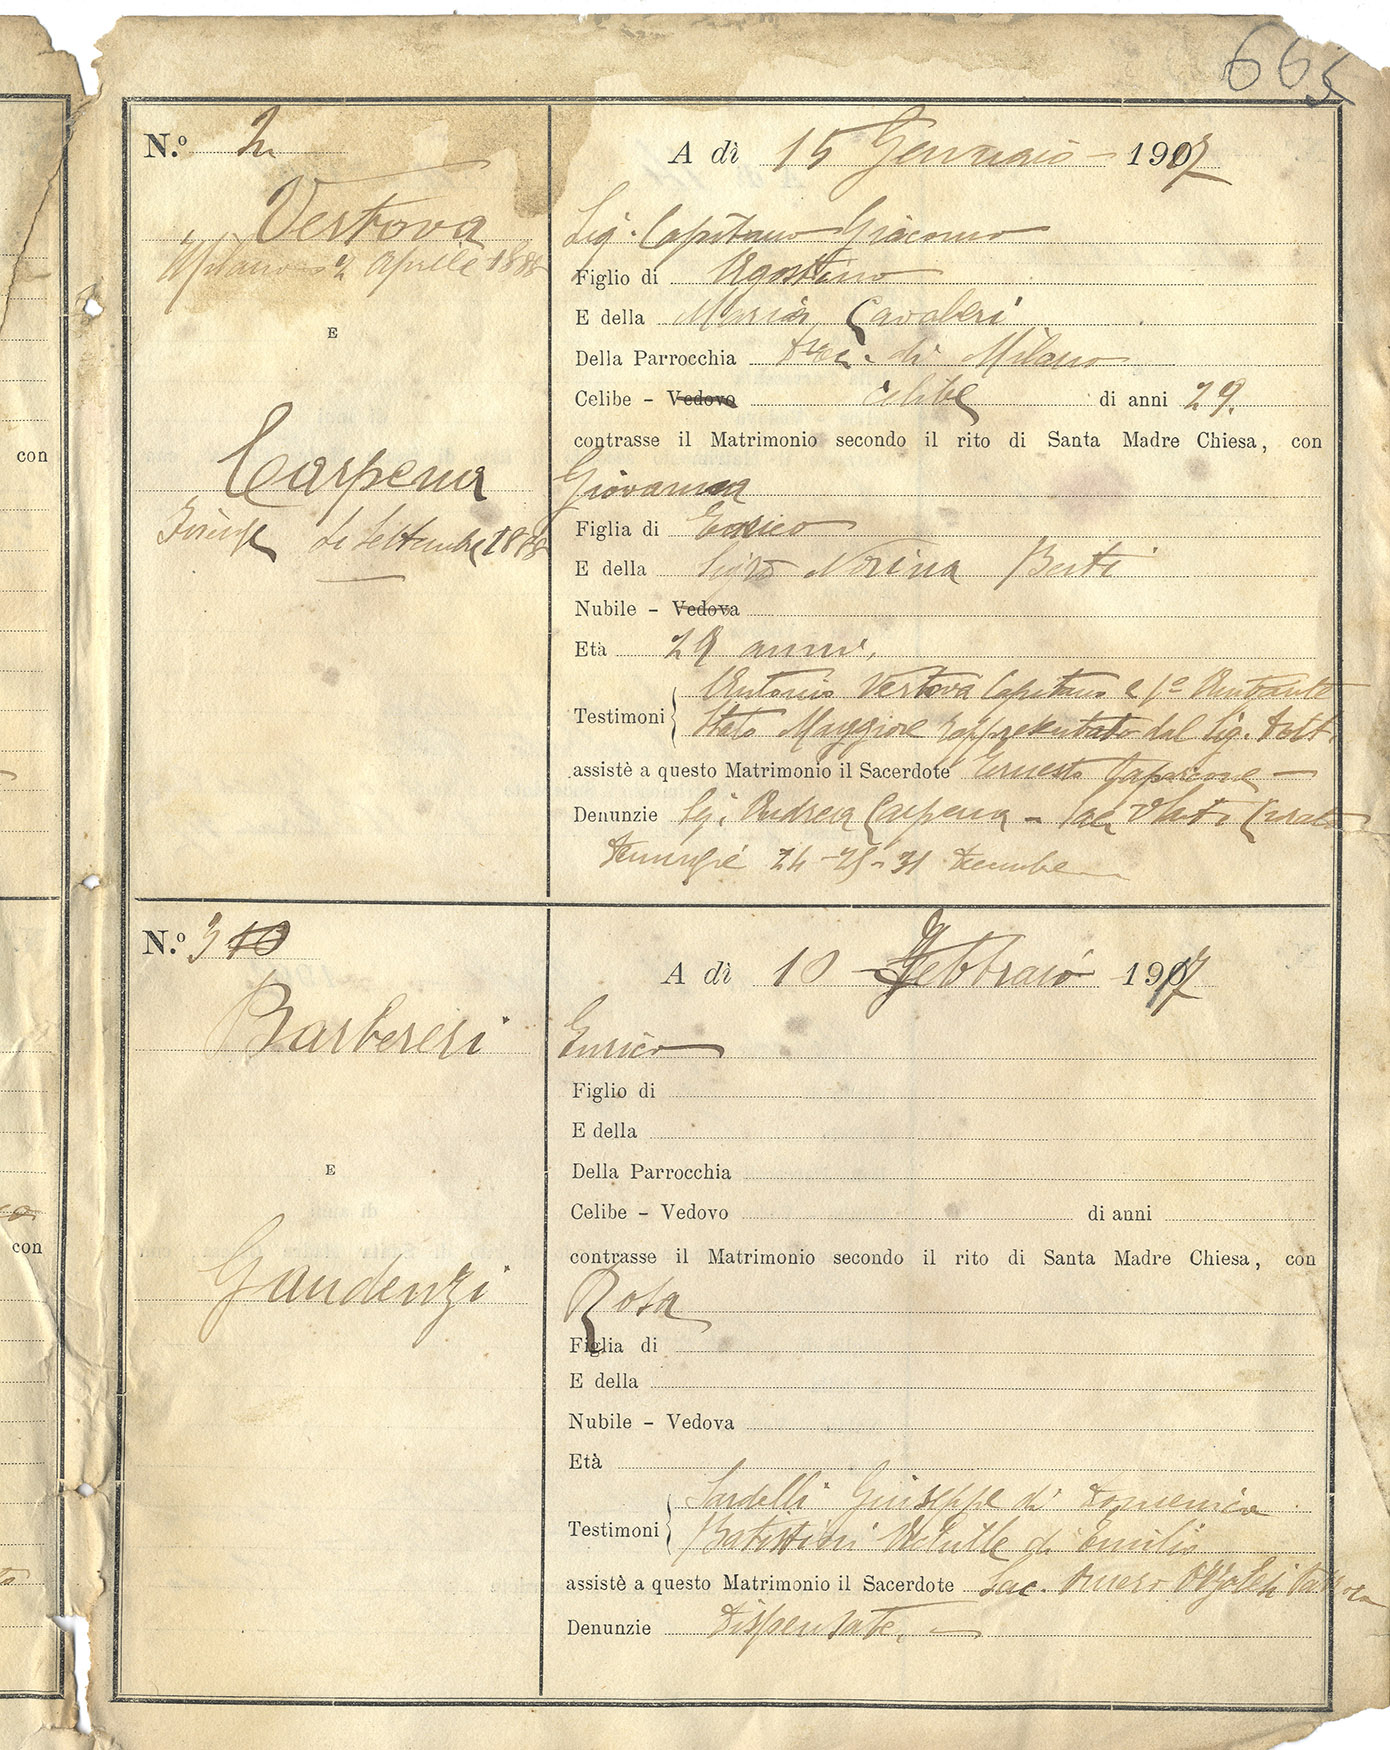 665
N.º 2.
Vertova
Milano 2 Aprile 1888
E
Carpena
Firenze Settembre 1888
A dì 15 Gennaio 1907
Sig. Capitano Giacomo
Figlio di Agostino
E della Maria Cavaleri
Della Parrocchia di Milano
Celibe - Vedovo celibe di anni 29.
contrasse il Matrimonio secondo il rito di Santa Madre Chiesa, con
Giovanna
Figlia di Enrico
E della Norina Berti
Nubile - Vedova
Età 29 anni,
Antonio Vertova Capitano e 1º Aiutante
Testimoni
Stato Maggiore rappresentato dal Sig. Dott.
assistè a questo Matrimonio il Sacerdote Ernesto
Denunzie Sg. Andrea Carpena - Curato
Denunzie 24-25-31 Decembre
con
con
N.º 3 10
Barbereri
E
Gaudenzi
A dì 10 Febbraio 1907
Enrico
Figlio di
E della
Della Parrocchia
Celibe - Vedovo di anni
contrasse il Matrimonio secondo il rito di Santa Madre Chiesa, con
Rosa
Figlia di
E della
Nubile - Vedova
Età
Sardelli Giuseppe di Domenico
Testimoni
Battistini Achille di Emilio
assistè a questo Matrimonio il Sacerdote Sac.
Denunzie Dispensate.